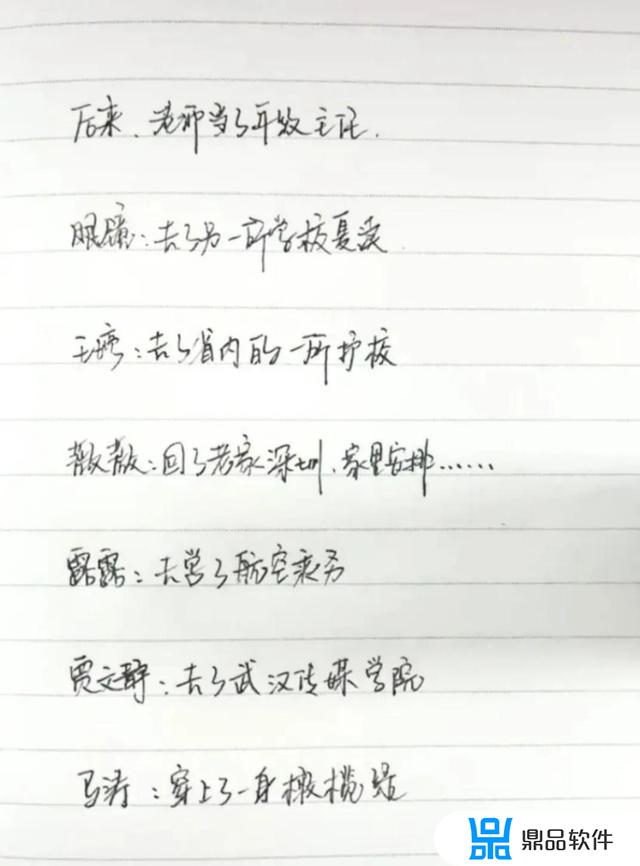 后来、老师当了年级主任.
眼镜：去了另一所学校复读
王婷：去了省内的一所护校
薇薇：回了老家深圳、家里安排……
露露：去当了航空乘务
贾文静：去了武汉传媒学院
马涛：穿上了一身橄榄绿
鼎品软件